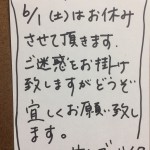 6/1(土)はお休み
させて頂きます.
ご迷惑をお掛け
致しますがどうぞ
宜しくお願い致し
ます。